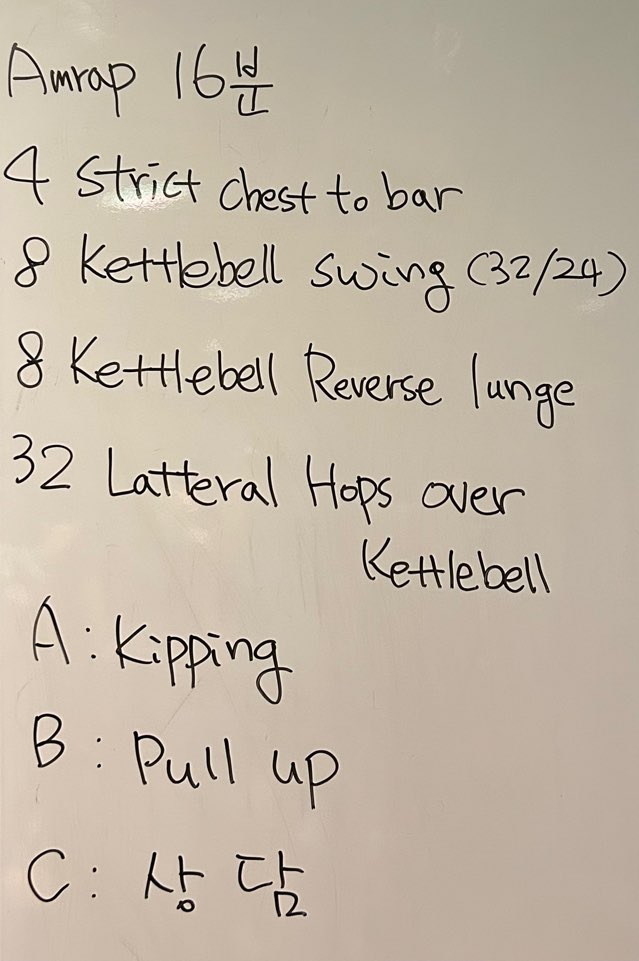 Amrap 16분
4 Strict chest to bar
8 Kettlebell swing (32/24)
8 Kettlebell Reverse lunge
32 Latteral Hops over
Kettlebell
A : Kipping
B : Pull up
C : 상담